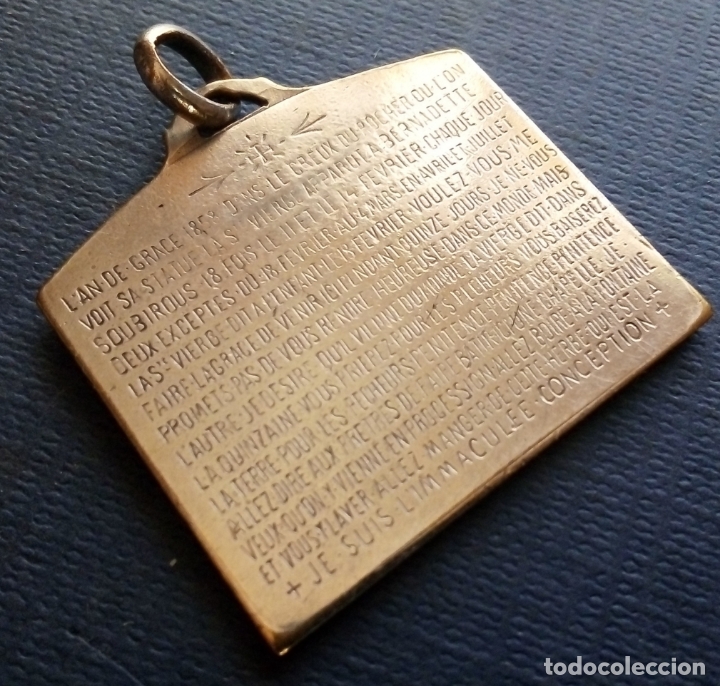 L'AN·DE·GRACE·185 DANS·LE·CREUX·DU·ROCHER·OU·L'ON
VOIT SA·STATUE·LA Sᵗᵉ VIERGE APPARUT A BERNADETTE
SOUBIROUS 18 FOIS·LE FEVRIER·CHAQUE JOUR
DEUX EXCEPTES·DU·18·FEVRIER·AU·4·MARS·EN·AVRIL·ET·JUILLET
LA Sᵗᵉ VIERGE·DIT·A L'ENFANT·LE 18 FEVRIER·VOULEZ-VOUS·ME
FAIRE·LA·GRACE·DE·VENIR·ICI PENDANT·QUINZE·JOURS·JE·NE·VOUS
PROMETS·PAS·DE·VOUS RENDRE HEUREUSE·DANS·CE·MONDE·MAIS
L'AUTRE·JE·DESIRE QU'IL VIENT DU MONDE LA VIERGE DIT·DANS
LA QUINZAINE VOUS PRIEREZ POUR LES PECHEURS VOUS BAISEREZ
LA TERRE·POUR LES PECHEURS PENITENCE·PENITENCE·PENITENCE
ALLEZ DIRE AUX PRETRES·DE FAIRE BATIR CHAPELLE·JE
VEUX·QU'ON·Y·VIENNE EN PROCESSION ALLEZ BOIRE·A·LA·FONTAINE
ET VOUS Y LAVER·ALLEZ MANGER·DE CETTE·HERBE·QUI·EST·LA
+ JE·SUIS L'IMMACULEE·CONCEPTION +
todocoleccion
todocoleccion.net